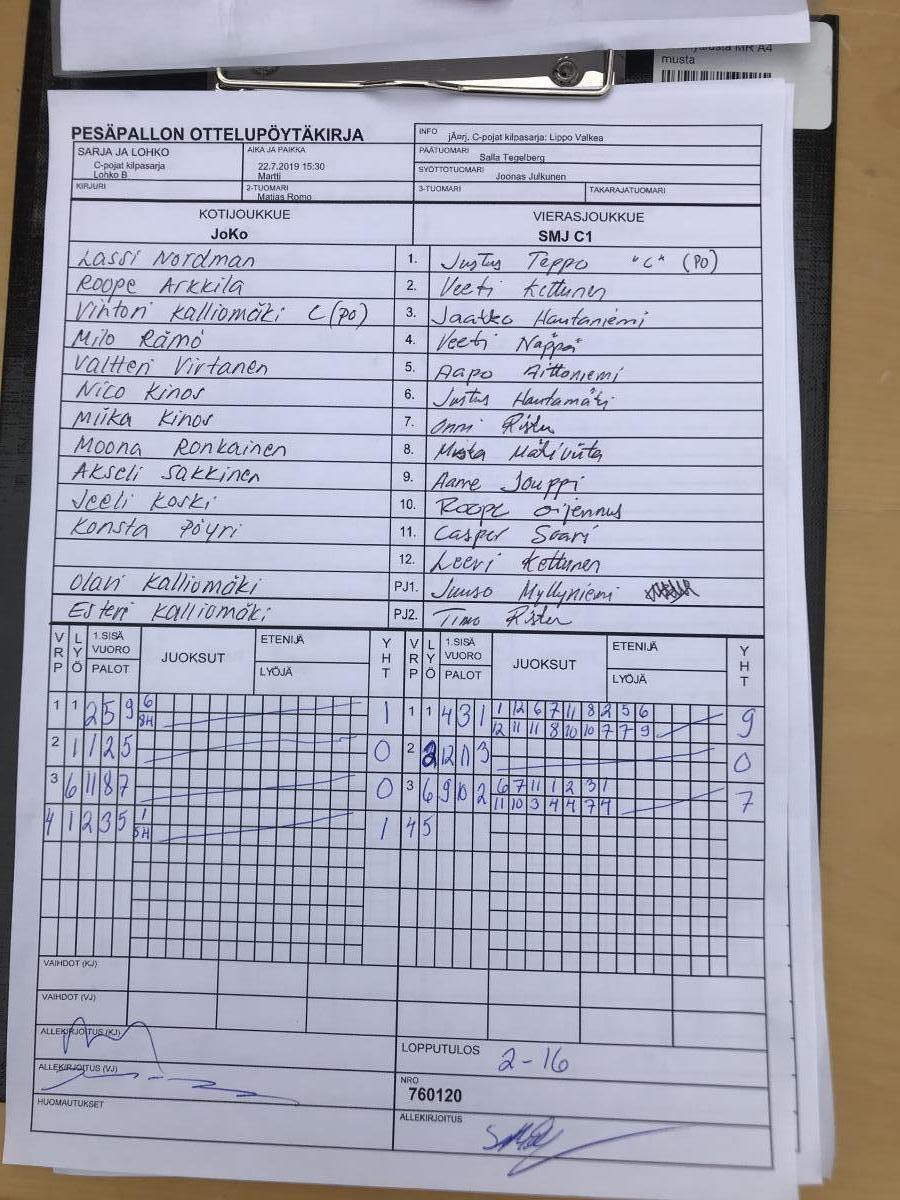 musta
PESÄPALLON OTTELUPÖYTÄKIRJA
INFO jÄ¤rj. C-pojat kilpasarja: Lippo Valkea
SARJA JA LOHKO
C-pojat kilpasarja
Lohko B
AIKA JA PAIKKA
22.7.2019 15:30
Martti
PÄÄTUOMARI
Salla Tegelberg
SYÖTTÖTUOMARI Joonas Julkunen
KIRJURI
2-TUOMARI
Matias Romo
3-TUOMARI
TAKARAJATUOMARI
KOTIJOUKKUE VIERASJOUKKUE
JoKo SMJ C1
Lassi Nordman 1. Justus Teppo "C" (PO)
Roope Arkkila 2. Veeti Kettunen
Vihtori Kalliomäki C (PO) 3. Jaakko Hautaniemi
Milo Rämö 4. Veeti Näppä
Valtteri Virtanen 5. Aapo Aittoniemi
Nico Kinos 6. Justus Hautamäki
Miika Kinos 7. Onni Ristu
Moona Ronkainen 8.
Akseli Sakkinen 9. Aame Jouppi
Veeli Koski 10. Roope Oijennus
Konsta Pöyri 11. Casper Soari
12. Leevi Kettunen
Olavi Kalliomäki PJ1. Juuso Myllyniemi
Esteri Kalliomäki PJ2. Timo Ristu
VRP LYÖ 1.SISÄ VUORO PALOT JUOKSUT ETENIJÄ LYÖJÄ YHT VRP LYÖ 1.SISÄ VUORO PALOT JUOKSUT ETENIJÄ LYÖJÄ YHT
1 1 2 5 9 6 1 1 1 4 3 1 1 12 6 7 11 8 2 5 6 9
8H 12 11 11 8 10 10 7 7 9
2 1 1 2 5 0 2 2 12 11 3 0
3 6 11 8 7 0 3 6 9 10 2 6 7 11 1 2 3 1 7
11 10 3 4 4 7 4
4 1 2 3 5 1 1 4 5
5H
VAIHDOT (KJ)
VAIHDOT (VJ)
ALLEKIRJOITUS (KJ)
LOPPUTULOS 2-16
ALLEKIRJOITUS (VJ)
NRO
760120
HUOMAUTUKSET
ALLEKIRJOITUS